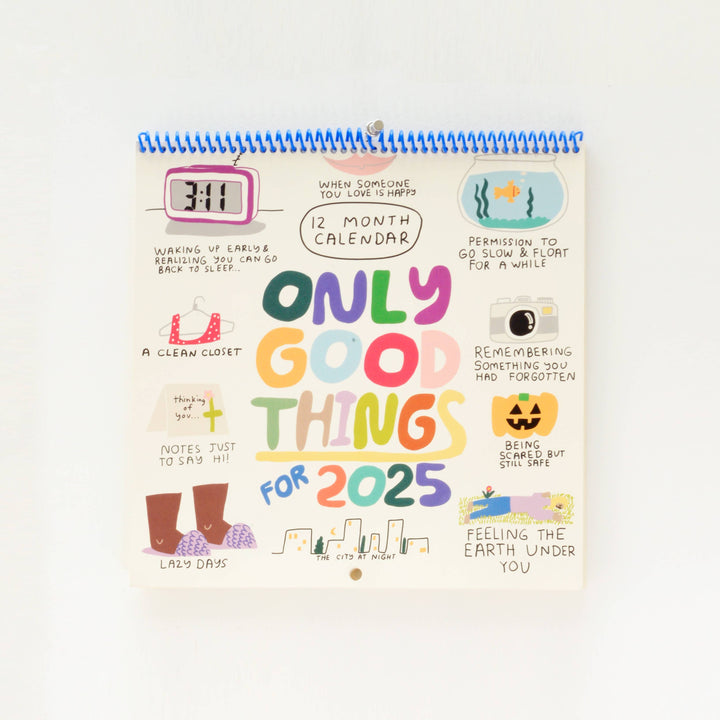 3:11
WAKING UP EARLY &
REALIZING YOU CAN GO
BACK TO SLEEP...
WHEN SOMEONE
YOU LOVE IS HAPPY
12 MONTH
CALENDAR
PERMISSION TO
GO SLOW & FLOAT
FOR A WHILE
ONLY
GOOD
THINGS
FOR 2025
A CLEAN CLOSET
REMEMBERING
SOMETHING YOU
HAD FORGOTTEN
thinking
of
you...
NOTES JUST
TO SAY HI!
BEING
SCARED BUT
STILL SAFE
LAZY DAYS
THE CITY AT NIGHT
FEELING THE
EARTH UNDER
YOU